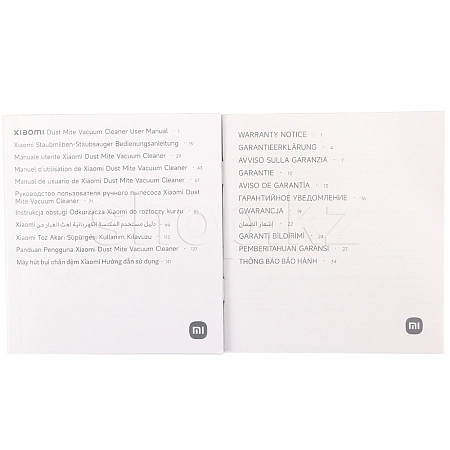 xiaomi Dust Mite Vacuum Cleaner User Manual · 1
Xiaomi Staubmilben-Staubsauger Bedienungsanleitung · 15
Manuale utente Xiaomi Dust Mite Vacuum Cleaner · 29
Manuel d'utilisation de Xiaomi Dust Mite Vacuum Cleaner · 43
Manual de usuario de Xiaomi Dust Mite Vacuum Cleaner · 57
Руководство пользователя ручного пылесоса Xiaomi Dust
Mite Vacuum Cleaner · 71
Instrukcja obsługi Odkurzacza Xiaomi do roztoczy kurzu
دليل مستخدم المكنسة الكهربائية لعث الغبار من Xiaomi
Xiaomi Toz Akarı Süpürgesi Kullanım Kılavuzu
Panduan Pengguna Xiaomi Dust Mite Vacuum Cleaner · 127
Máy hút bụi chăn đệm Xiaomi Hướng dẫn sử dụng · 141
mi
WARRANTY NOTICE · 1
GARANTIEERKLÄRUNG · 4
AVVISO SULLA GARANZIA · 7
GARANTIE · 10
AVISO DE GARANTÍA · 13
ГАРАНТИЙНОЕ УВЕДОМЛЕНИЕ · 16
GWARANCJA · 19
إشعار الضمان · 22
GARANTİ BİLDİRİMİ · 24
PEMBERITAHUAN GARANSI · 27
THÔNG BÁO BẢO HÀNH · 34
mi